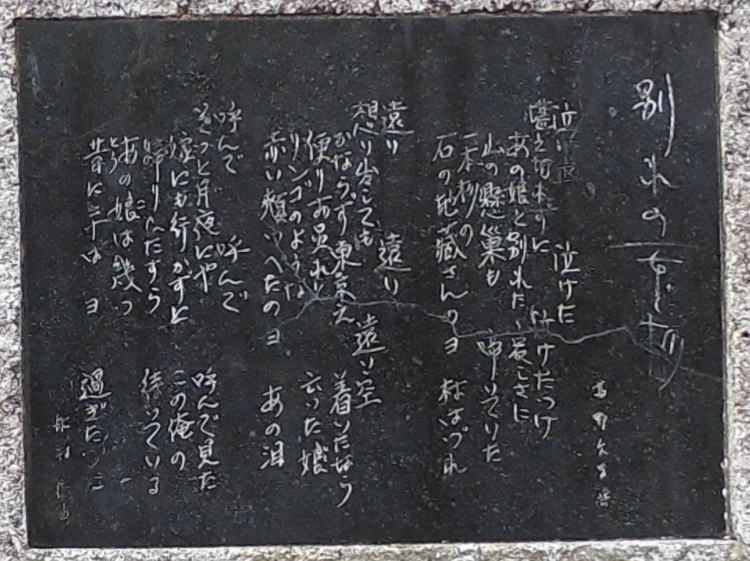 別れの一本杉
高野公男
泣けた 泣けた
堪え切れずに 泣けたっけ
あの娘と別れた 哀しさに
山の懸巣も 啼いていた
一本杉の
石の地蔵さんのヨ 村はづれ
遠い 遠い
想い出しても 遠い空
かならず東京え 着いたなら
便りお呉れと 云った娘
リンゴのような
赤い頬っぺたのヨ あの泪
呼んで 呼んで
そっと月夜にや 呼んで見た
嫁にも行かずに この俺の
帰りひたすら 待っている
あの娘は幾つ
昔に二十はヨ 過ぎたろに
船村